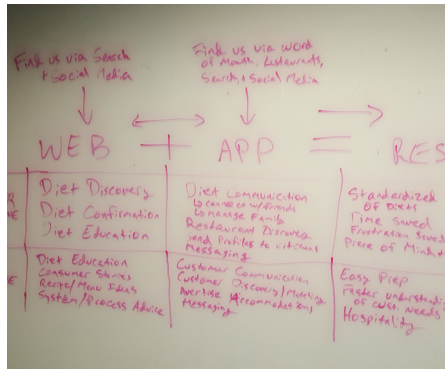 Find us via Search
+ Social Media
Find us via word
of Mouth, Restaurants,
Search, + Social Media
WEB + APP = RES
Diet Discovery
Diet Confirmation
Diet Education
Diet Communication
to connect w/ friends
to manage Family
Restaurant Discovery
Send Profiles to kitchens
Messaging
Standardized
of Diets
Time Saved
Frustration Saved
Piece of Mind
Diet Education
Consumer Stories
Recipe/Menu Ideas
System/Process Advice
Customer Communication
Customer Discovery/Matching
Avertise Accommodations
Messaging
Easy Prep
Faster understandi
of cust. needs
Hospitality